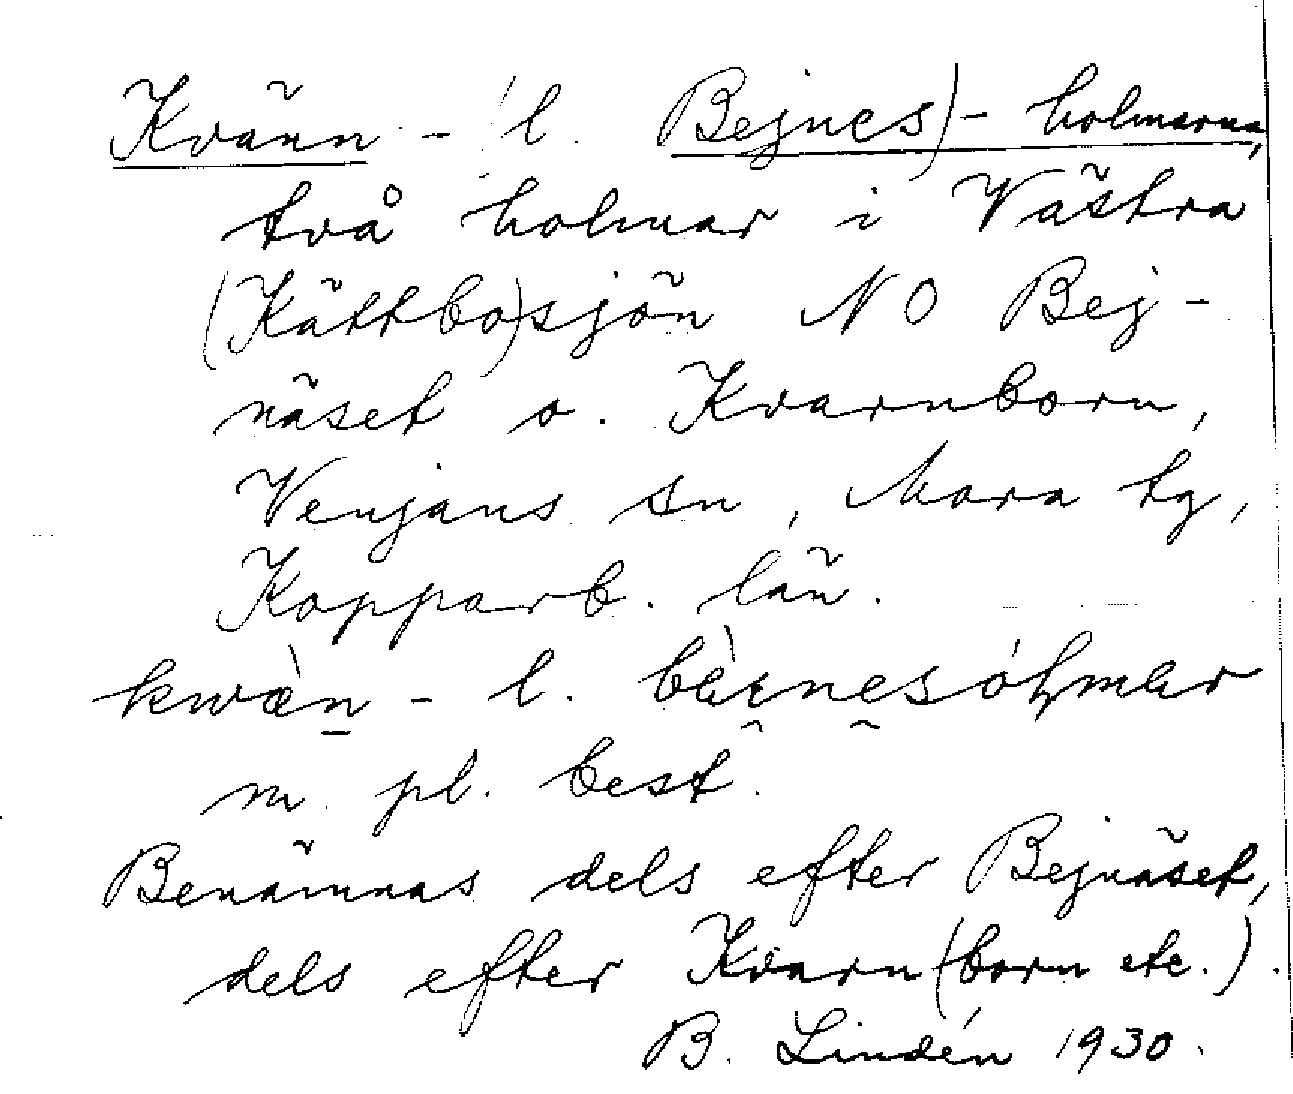 Kvänn - (l. Bejnes)- holmarna,
två holmar i Västra
(Kättbo)sjön NO Bej-
näset o. Kvarnborn,
Venjans sn, Mora tg,
Kopparb. län.
kwæ̀n̲ - l.
m. pl. best.
Benämnas dels efter Bejnäset,
dels efter Kvarn(born etc.).
B. Lindén 1930.